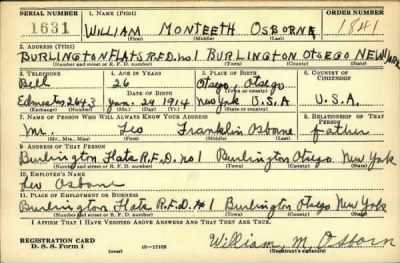 SERIAL NUMBER 1. NAME (Print) ORDER NUMBER
1631 WILLIAM MONTEETH OSBORNE 1841
(First) (Middle) (Last)
2. ADDRESS (Print)
BURLINGTON FLATS R.F.D. no 1 BURLINGTON OTSEGO NEW YORK
(Number and street or R. F. D. number) (Town) (County) (State)
3. TELEPHONE 4. AGE IN YEARS 5. PLACE OF BIRTH 6. COUNTRY OF CITIZENSHIP
Bell 26 Otsego, Otsego
DATE OF BIRTH
Edmeston 26Y3 Jan. 24 1914 New York U.S.A U.S.A.
(Exchange) (Number) (Mo.) (Day) (Yr.) (State or country)
7. NAME OF PERSON WHO WILL ALWAYS KNOW YOUR ADDRESS 8. RELATIONSHIP OF THAT PERSON
Mr. Leo Franklin Osborne father
(Mr., Mrs., Miss) (First) (Middle) (Last)
9. ADDRESS OF THAT PERSON
Burlington Flats R.F.D. no 1 Burlington Otsego New York
(Number and street or R. F. D. number) (Town) (County) (State)
10. EMPLOYER'S NAME
Leo Osborne
11. PLACE OF EMPLOYMENT OR BUSINESS
Burlington Flats R.F.D. #1 Burlington Otsego New York
(Number and street or R. F. D. number) (Town) (County) (State)
I AFFIRM THAT I HAVE VERIFIED ABOVE ANSWERS AND THAT THEY ARE TRUE.
REGISTRATION CARD
D. S. S. Form 1 (over) 16—17105 William M. Osborn
(Registrant's signature)